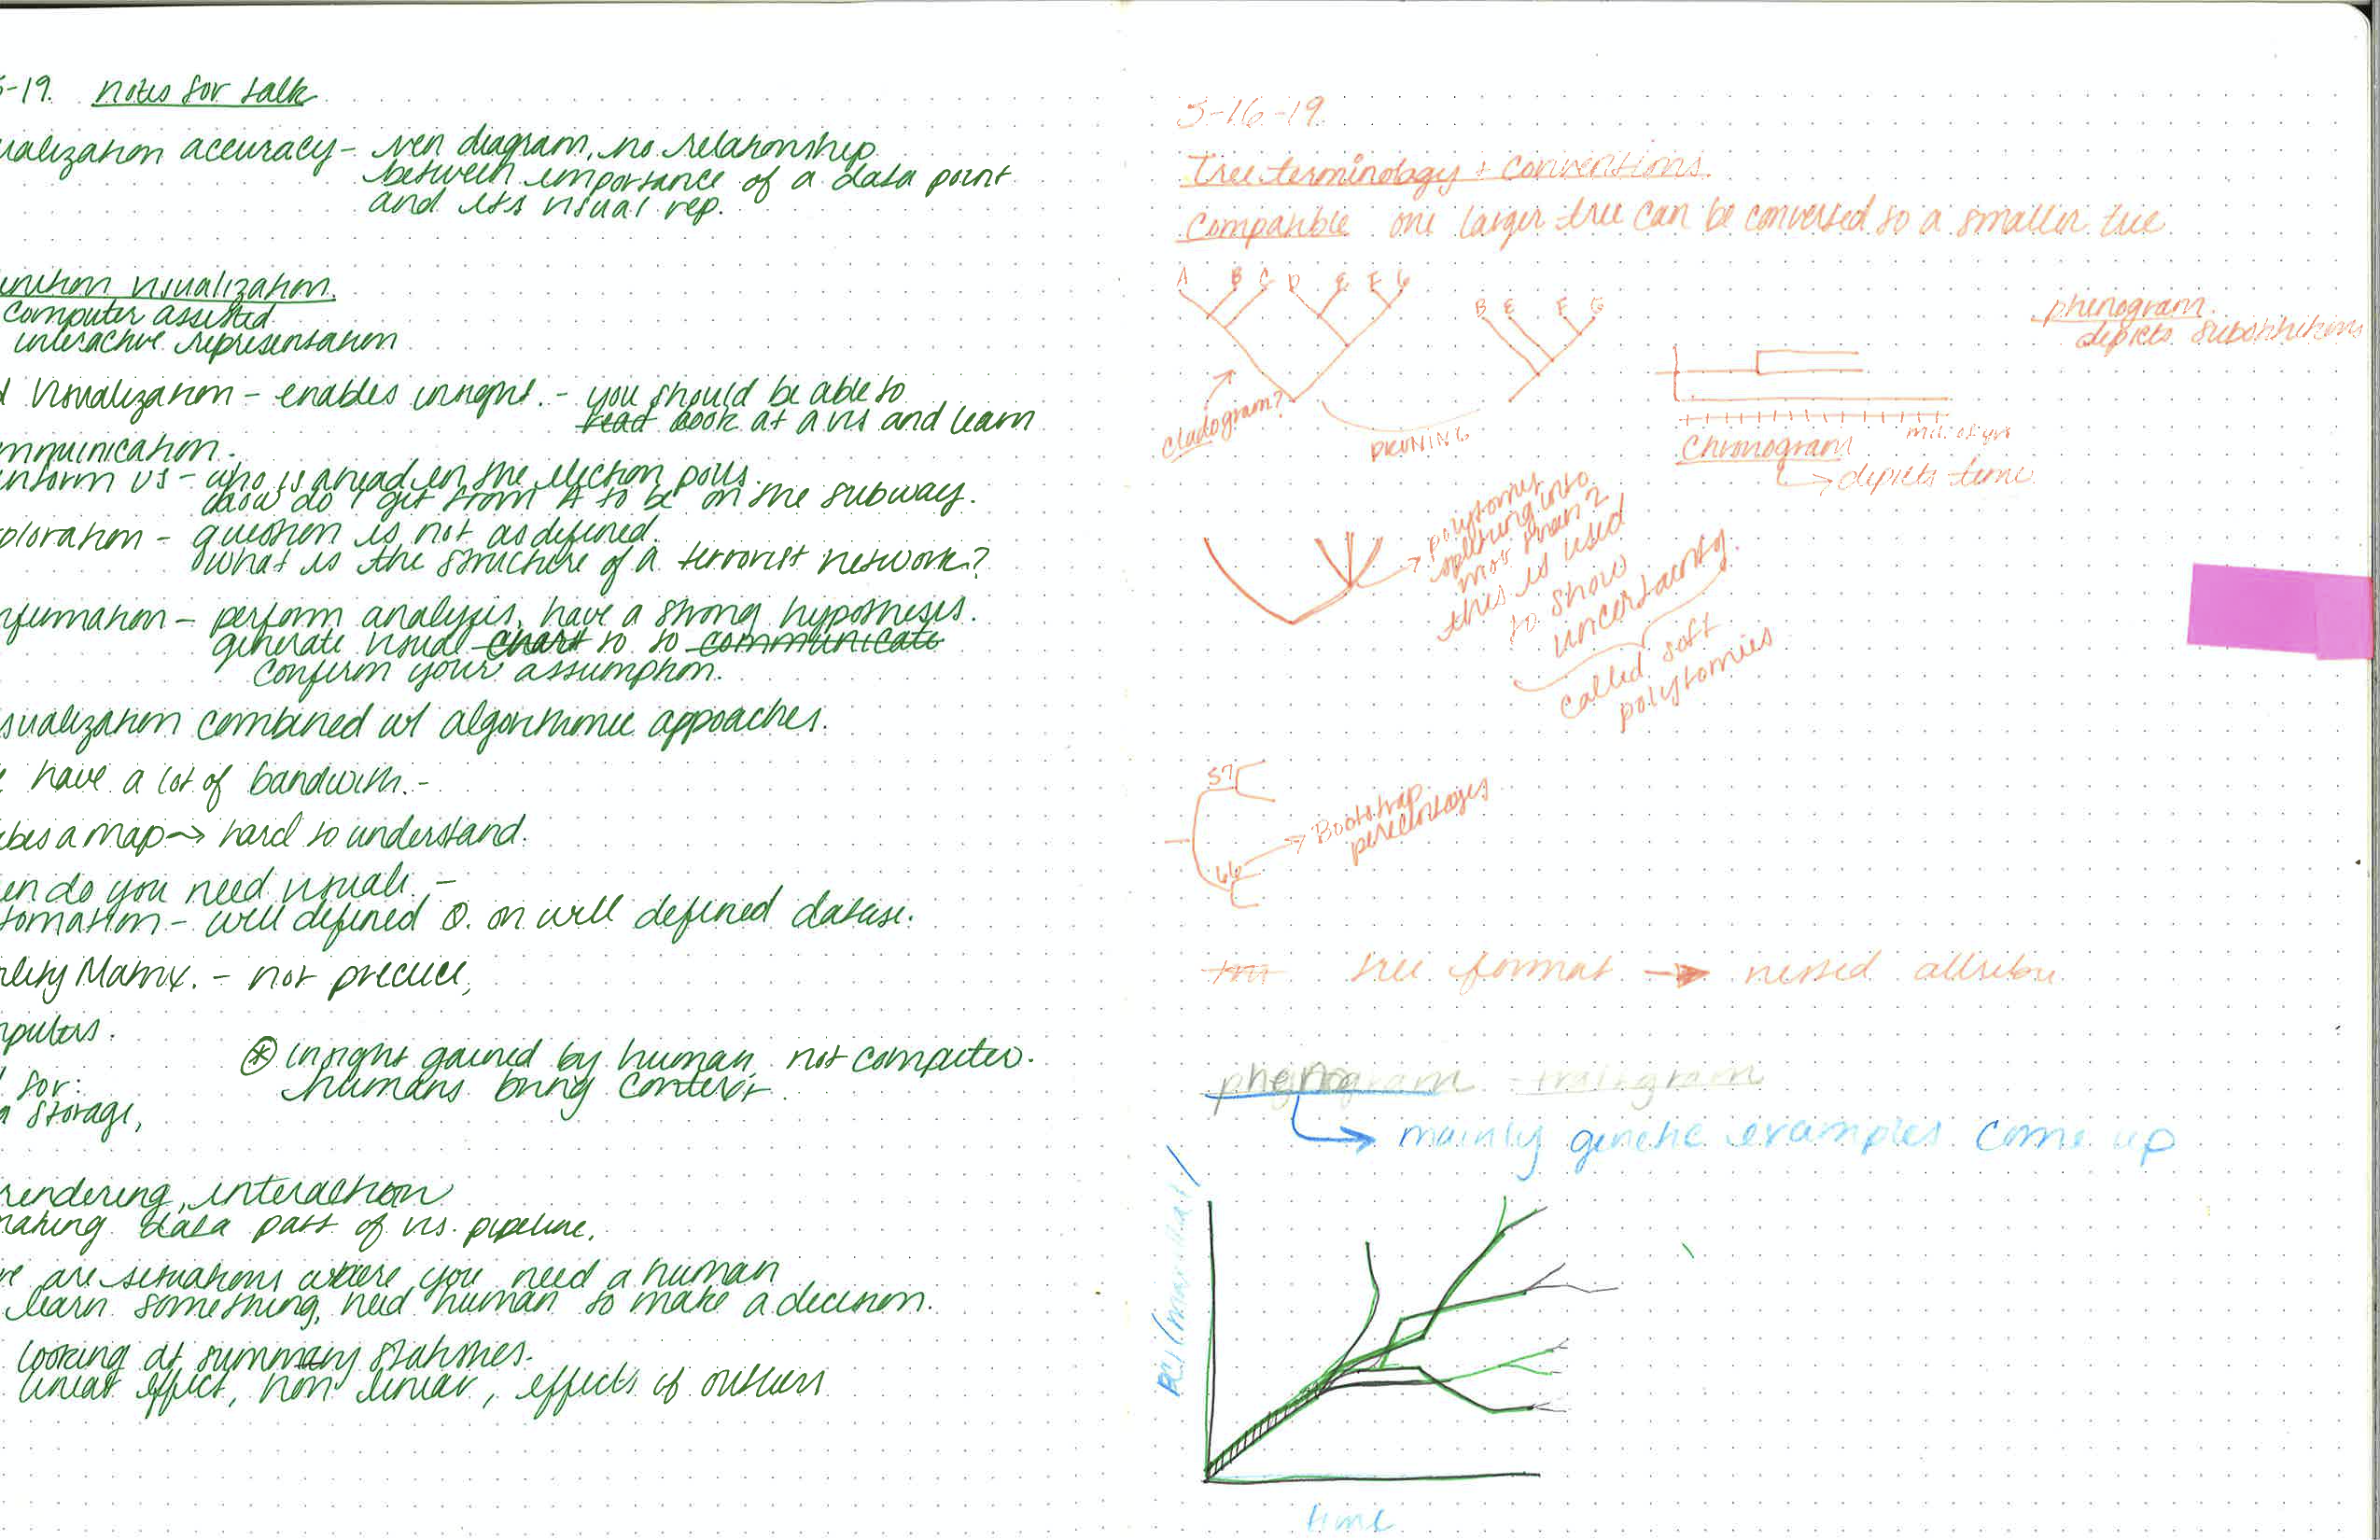 -19. notes for talk
ualization accuracy - ven diagram, no relationship
between importance of a data point
and its visual rep.
visualization.
computer assisted
interactive representation
d Visualization - enables insight. - you should be able to
read look at a vis and learn
mmunication.
inform us - who is ahead in the election polls.
how do I get from A to be on the subway.
ploration - question is not as defined.
what is the structure of a terrorist network?
nfirmation - perform analysis, have a strong hypothesis.
generate visual chart to to communicate
confirm your assumption.
sualization combined w/ algorithmic approaches.
have a lot of bandwith. -
bes a map → hard to understand.
en do you need visuals -
tomation - well defined Q. on well defined datase.
Matrix. - not precice,
mputers.
⊛ insight gained by human, not computer.
humans bring context
for:
a storage,
rendering, interaction
making data part of vis. pipeline.
re are situations where you need a human
learn something, need human to make a decision.
looking at summary statistics.
linear effect, non linear, effects of outliers
3-16-19.
Tree terminology + conventions.
Compatible one larger tree can be conversed to a smaller tree
A B C D E F G
B E F G
phenogram.
depicts substitutions
cladogram?
PRUNING
mil. of yrs
Chronogram
→ depicts time
→ polytomies
splitting into
mor than 2
this is used
to show
uncertainty.
called soft
polytomies
57
66
→ Bootstrap
percentages
tree format → nested attribu
phenogram - traitgram
→ mainly genetic examples come up
PC1
time